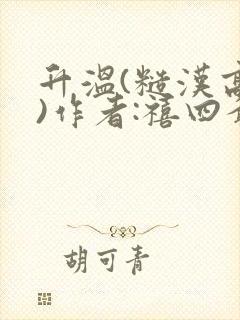 升温(糙漢高
)作者:禧四
胡可青